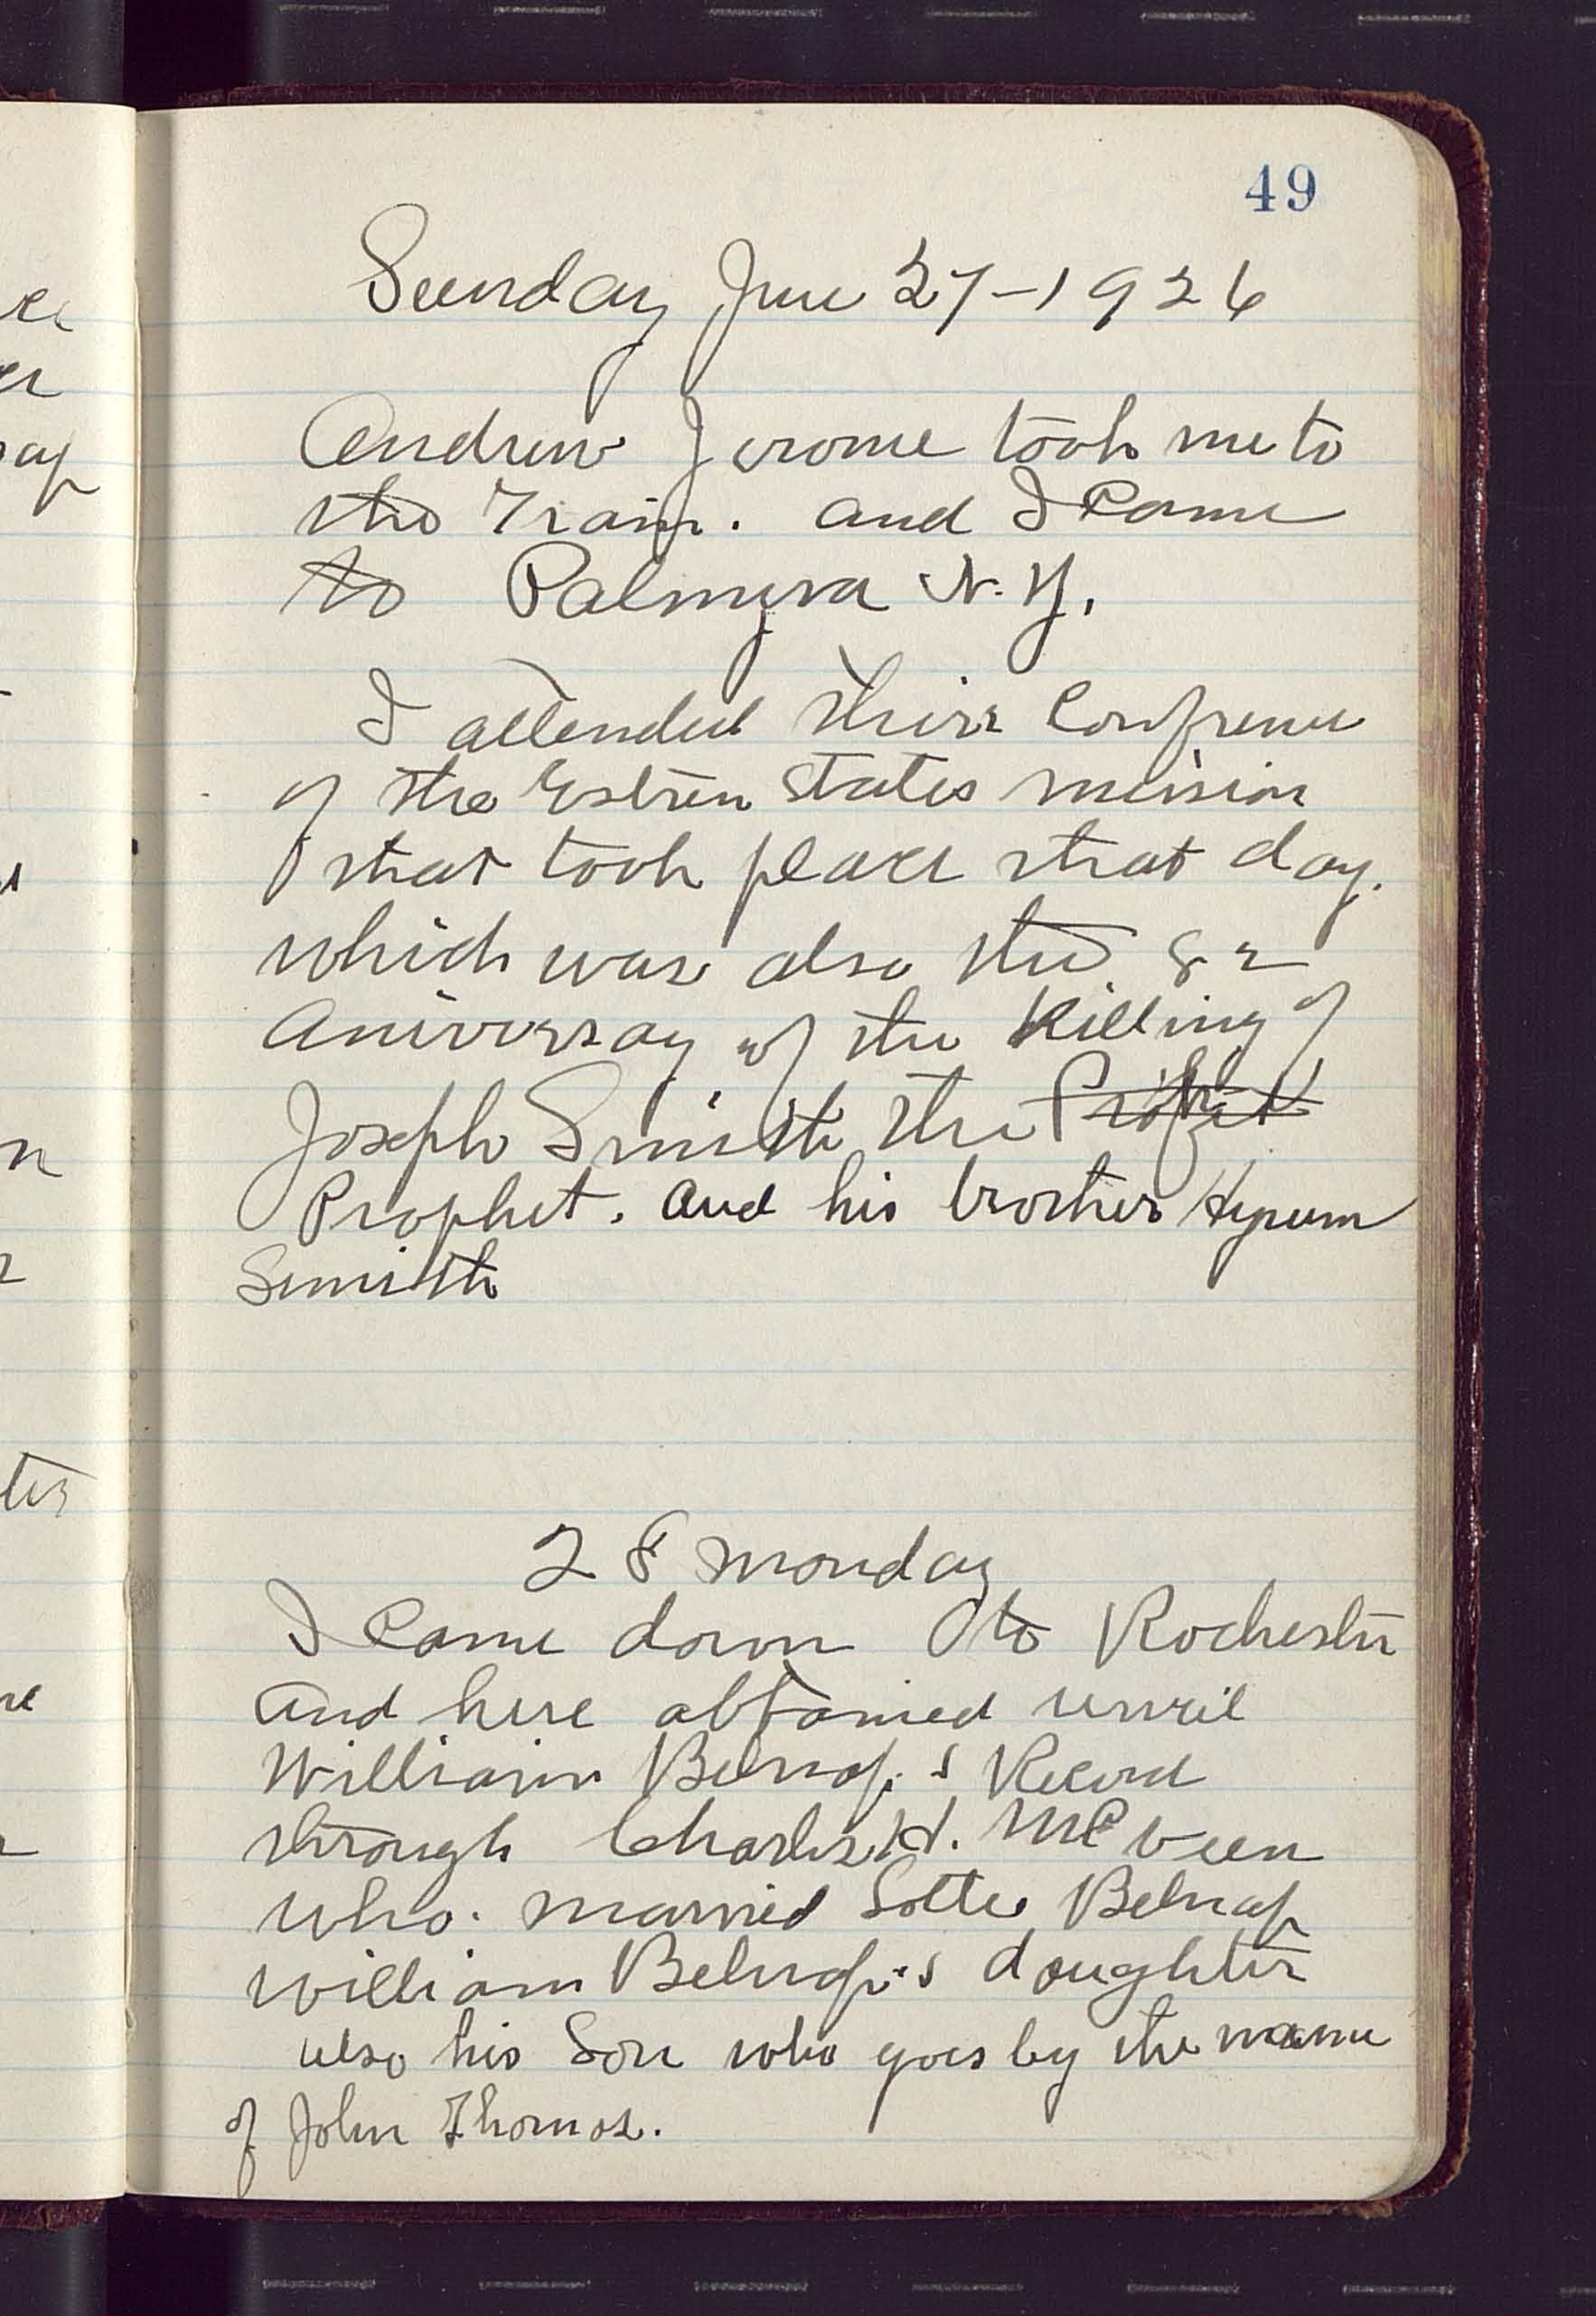 49
Sunday June 27-1926
Andrew Jerome took me to
the Train. and I Came
to Palmyra N.Y.
I attended their Confrence
of the Estren States mision
that took place that day.
which was also the 82
Aniversay of the Killing of
Joseph Smith the Profit
Prophet. and his brother Hyrum
Smith
28 Monday
I Came down to Rochester
and here obtained
William Belnap's Record
through Charles H. McVeen
who married Lotte Belnap
William Belnap's doughter
also his Son who goes by the name
of John Thomas.